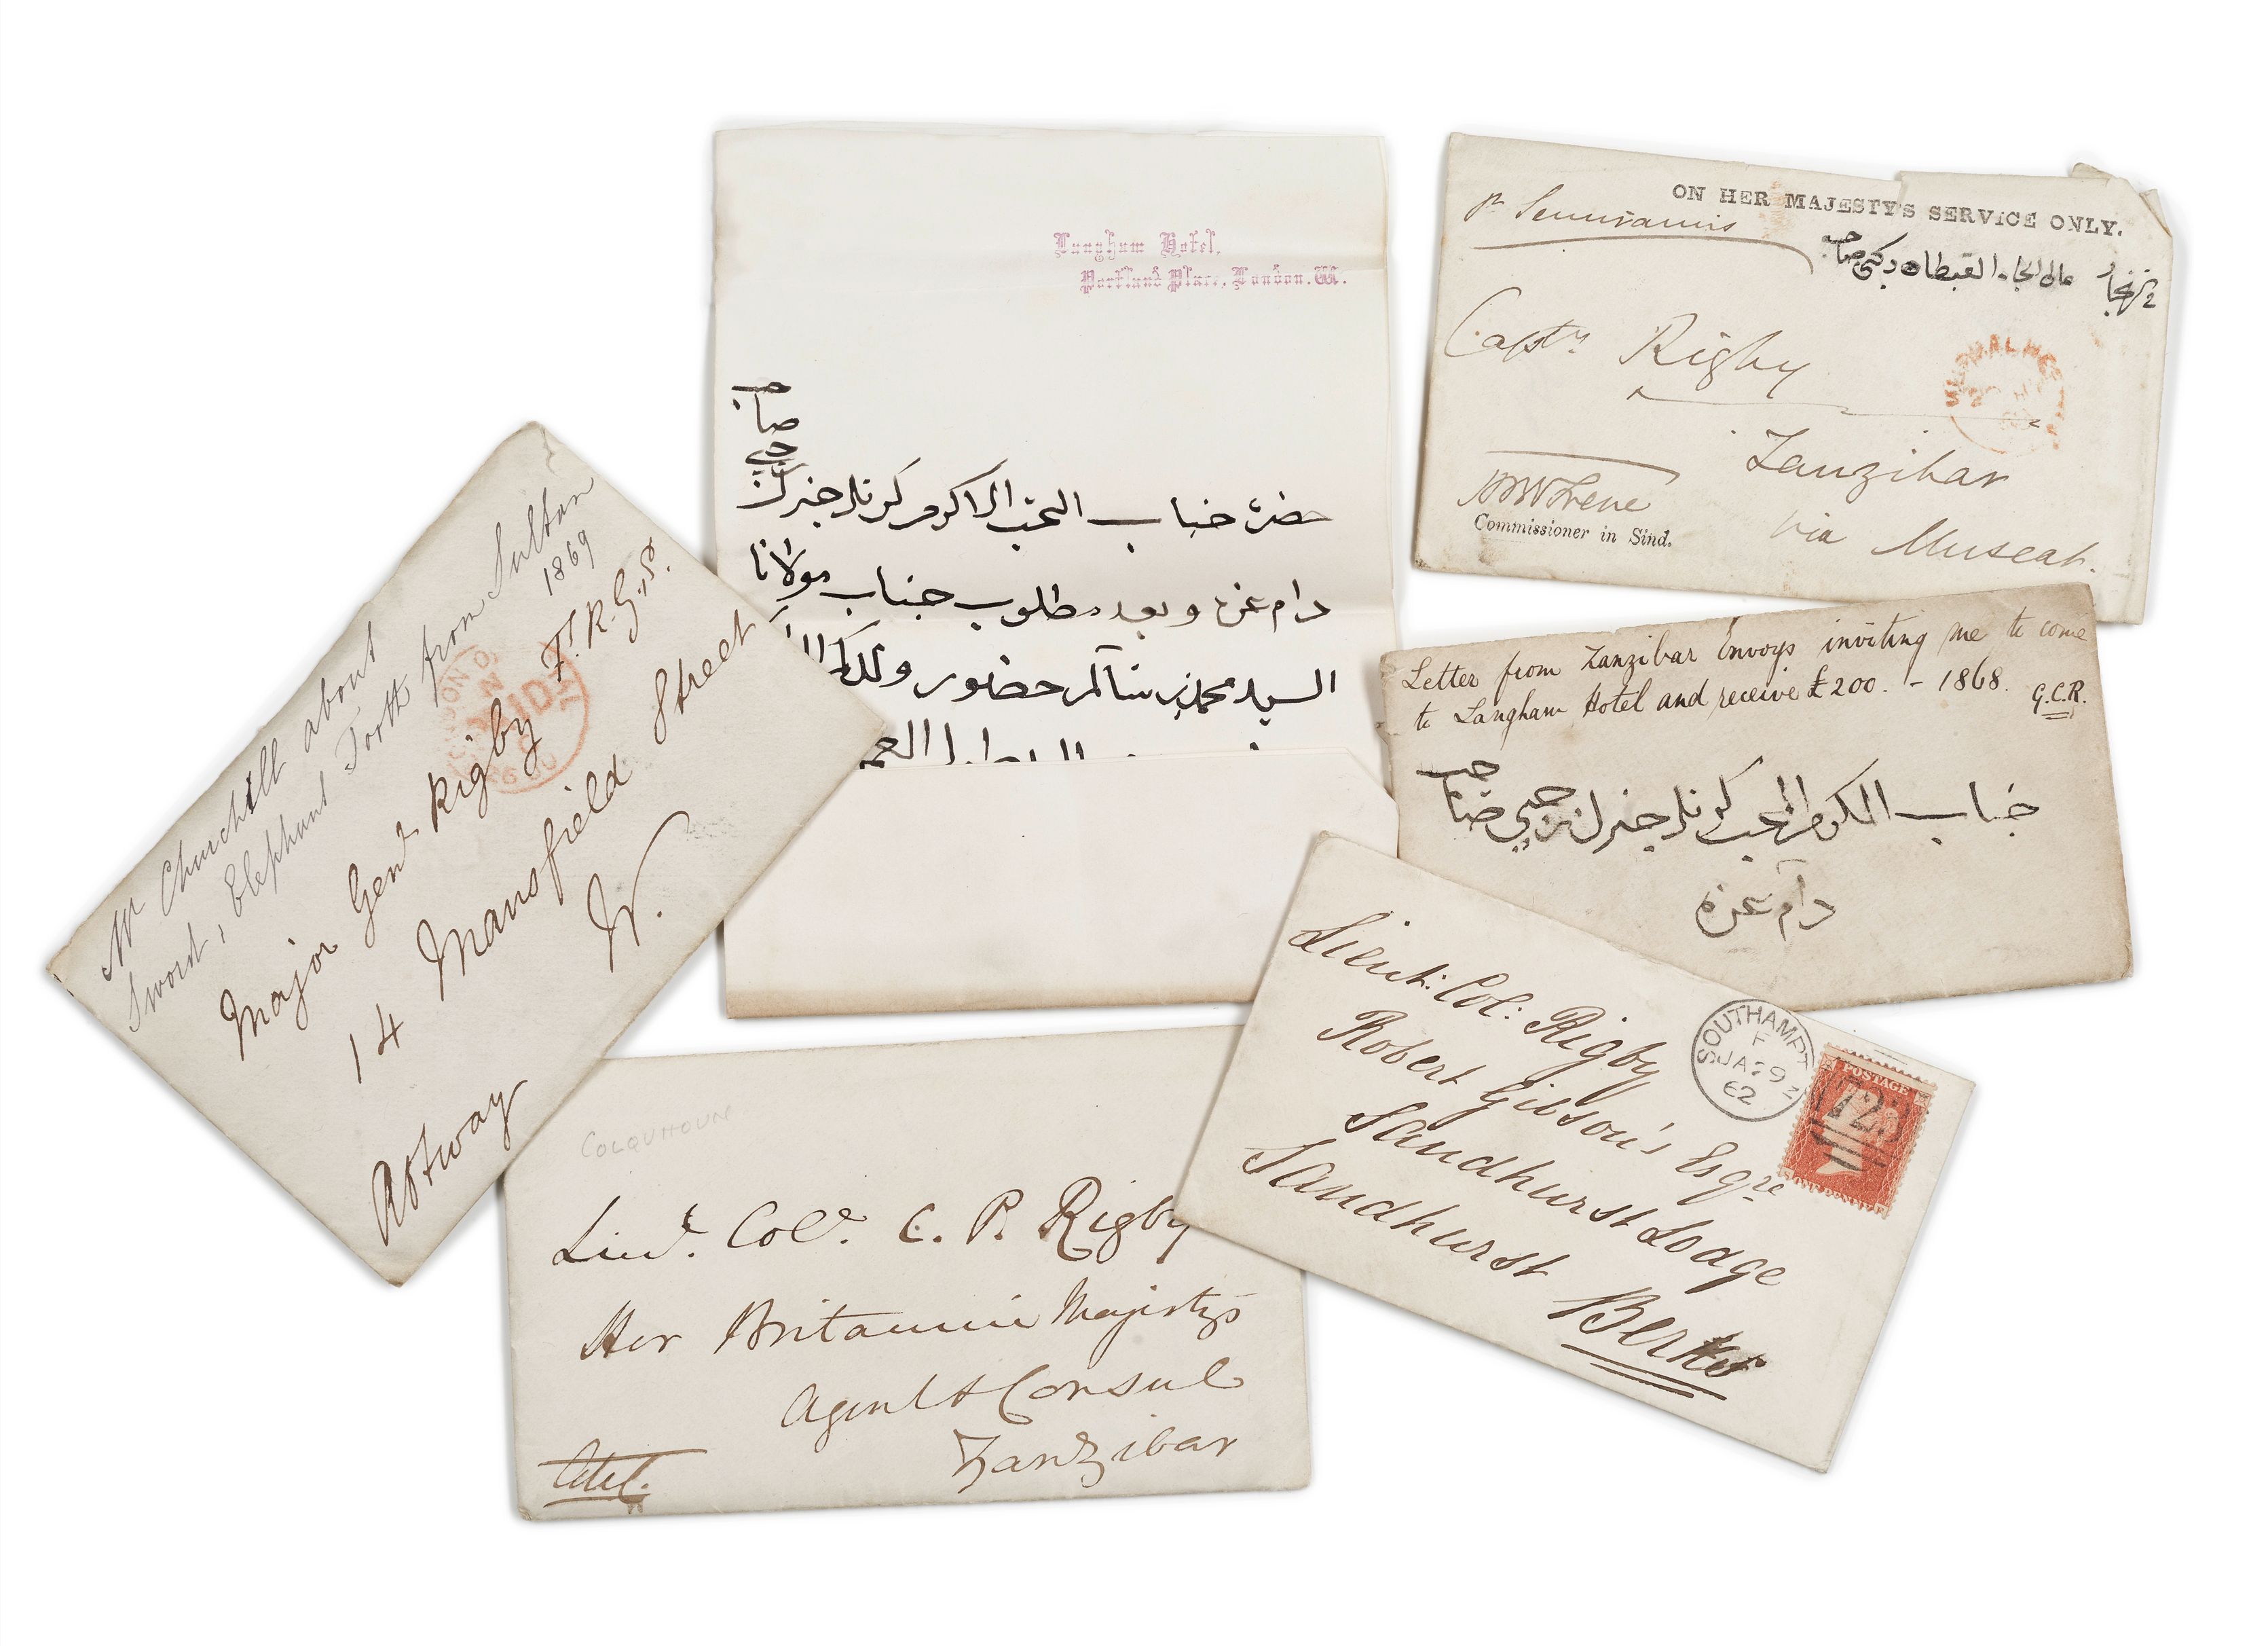 Langham Hotel,
Portland Place, London. W.
حضرة جناب المحب الاكرم كرنل جنرل رجبي صاحب
دام عزه وبعد مطلوب جناب مولانا
السيد محمد بن سالم حضور
ON HER MAJESTY'S SERVICE ONLY.
pr Semiramis
زنجبار
عالي الجاه القبطان ركبي صاحب
Captn Rigby
Zanzibar
via Muscat.
Commissioner in Sind.
Letter from Zanzibar Envoys inviting me to come
to Langham Hotel and receive £200. - 1868. G.C.R.
جناب المكرم المحب كرنل جنرل رجبي صاحب
دام عزه
Mr Churchill about
Sword, Elephant Tooth from Sultan
1869
Major Genl Rigby F.R.G.S.
14 Mansfield Street
W.
Ottway
LONDON
PAID
Lieut: Col: Rigby
Robert Gibson's Esqre
Sandhurst Lodge
Sandhurst
Berks
SOUTHAMPT
F
JA 29
62
POSTAGE
723
COLQUHOUN
Lieut. Col. C. P. Rigby
Her Britannic Majesty's
Agent & Consul
Zanzibar